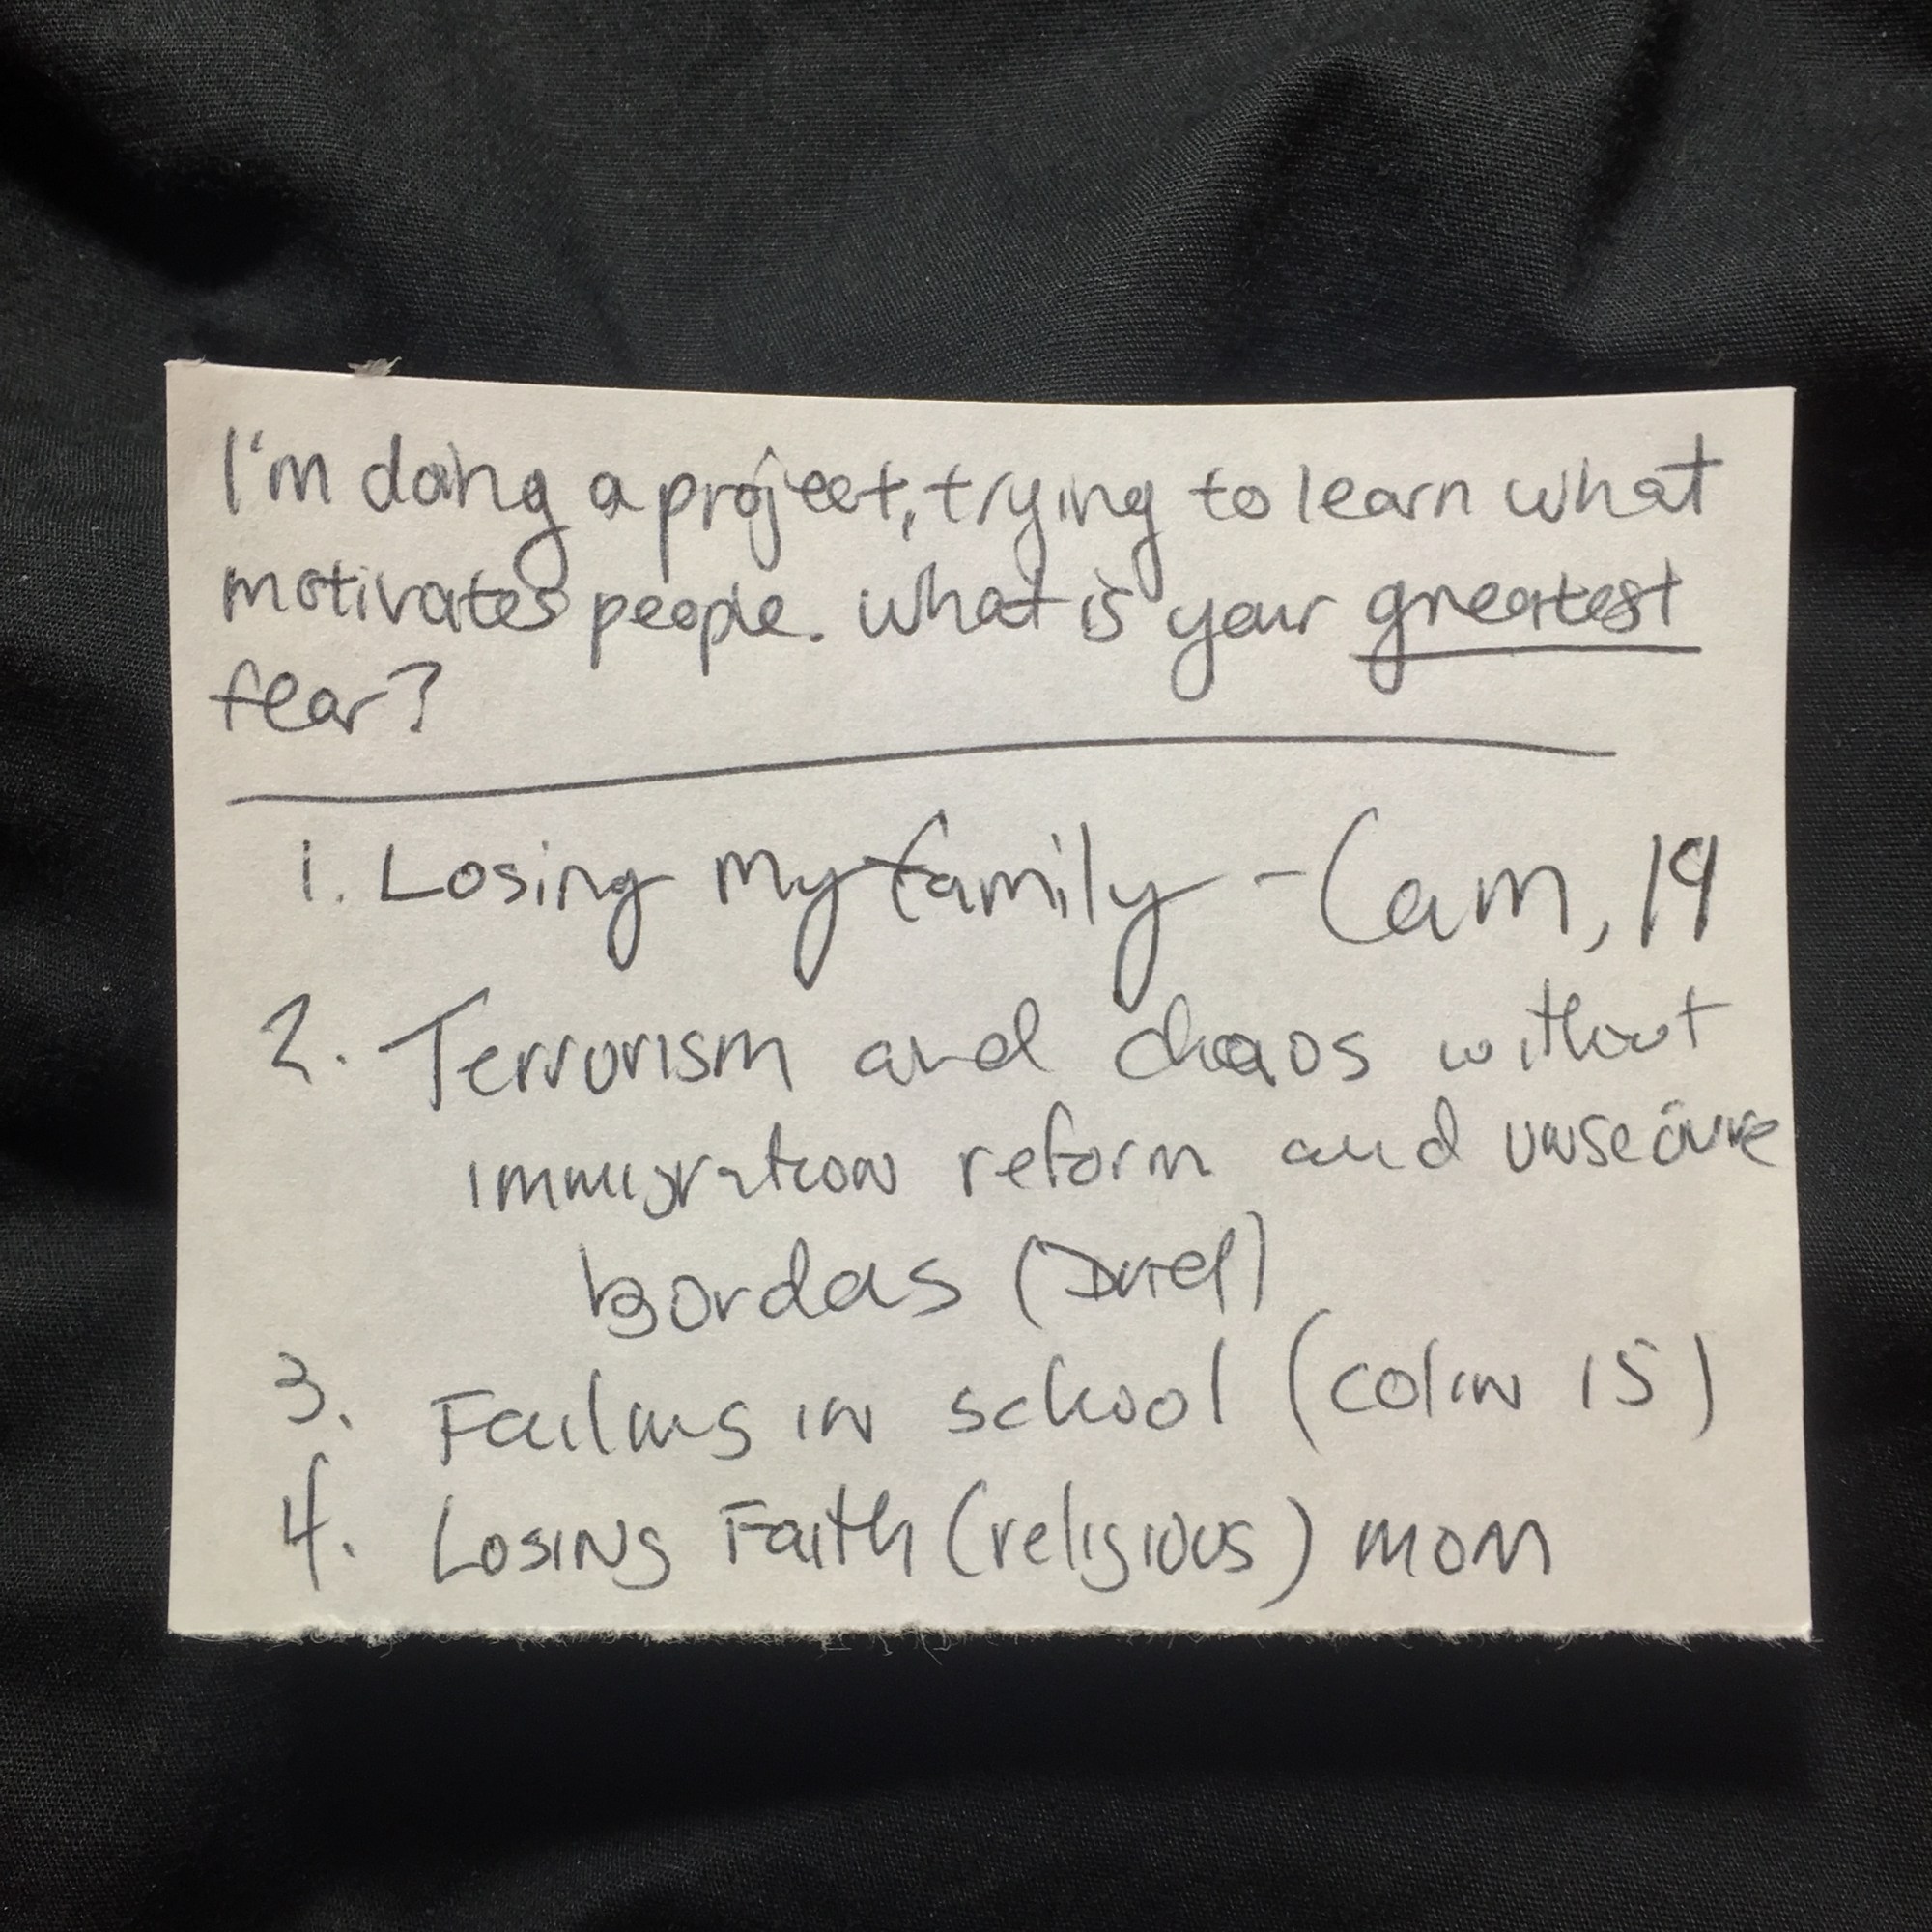 I'm doing a project, trying to learn what
motivates people. What is your greatest
fear?
1. Losing my family - Cam, 19
2. Terrorism and chaos without
immigration reform and unsecure
borders
3. Failing in school (Colin 15)
4. Losing Faith (religious) mom